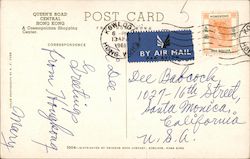 QUEEN'S ROAD
CENTRAL
HONG KONG
Cosmopolitan Shopping
Center.
POST CARD
CORRESPONDENCE
KOWLOON
HONG KONG
BY AIR MAIL
HONG KONG
Dee -
Greetings
from Hongkong
Mary
Dee Babcock
1027 - 16th Street
Santa Monica,
California
U.S.A.